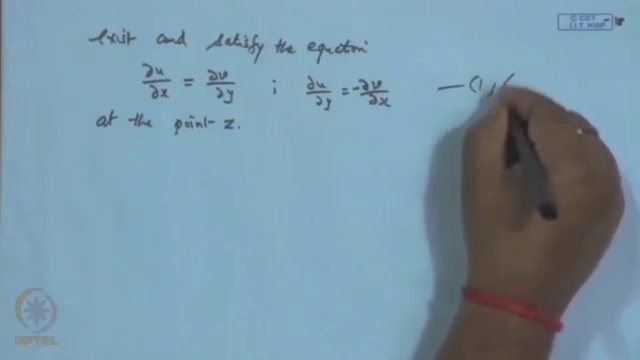 © CET
I.I.T. KGP
exist and satisfy the equation
∂u/∂x = ∂v/∂y ; ∂u/∂y = -∂v/∂x — (1)
at the point z.
NPTEL